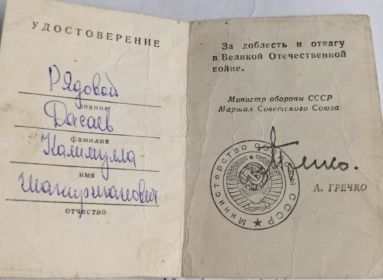 УДОСТОВЕРЕНИЕ
Рядовой
звание
Дасаев
фамилия
Калимулла
имя
Шакиржанович
отчество
За доблесть и отвагу
в Великой Отечественной
войне.
Министр обороны СССР
Маршал Советского Союза
А. ГРЕЧКО
Министерство
СССР